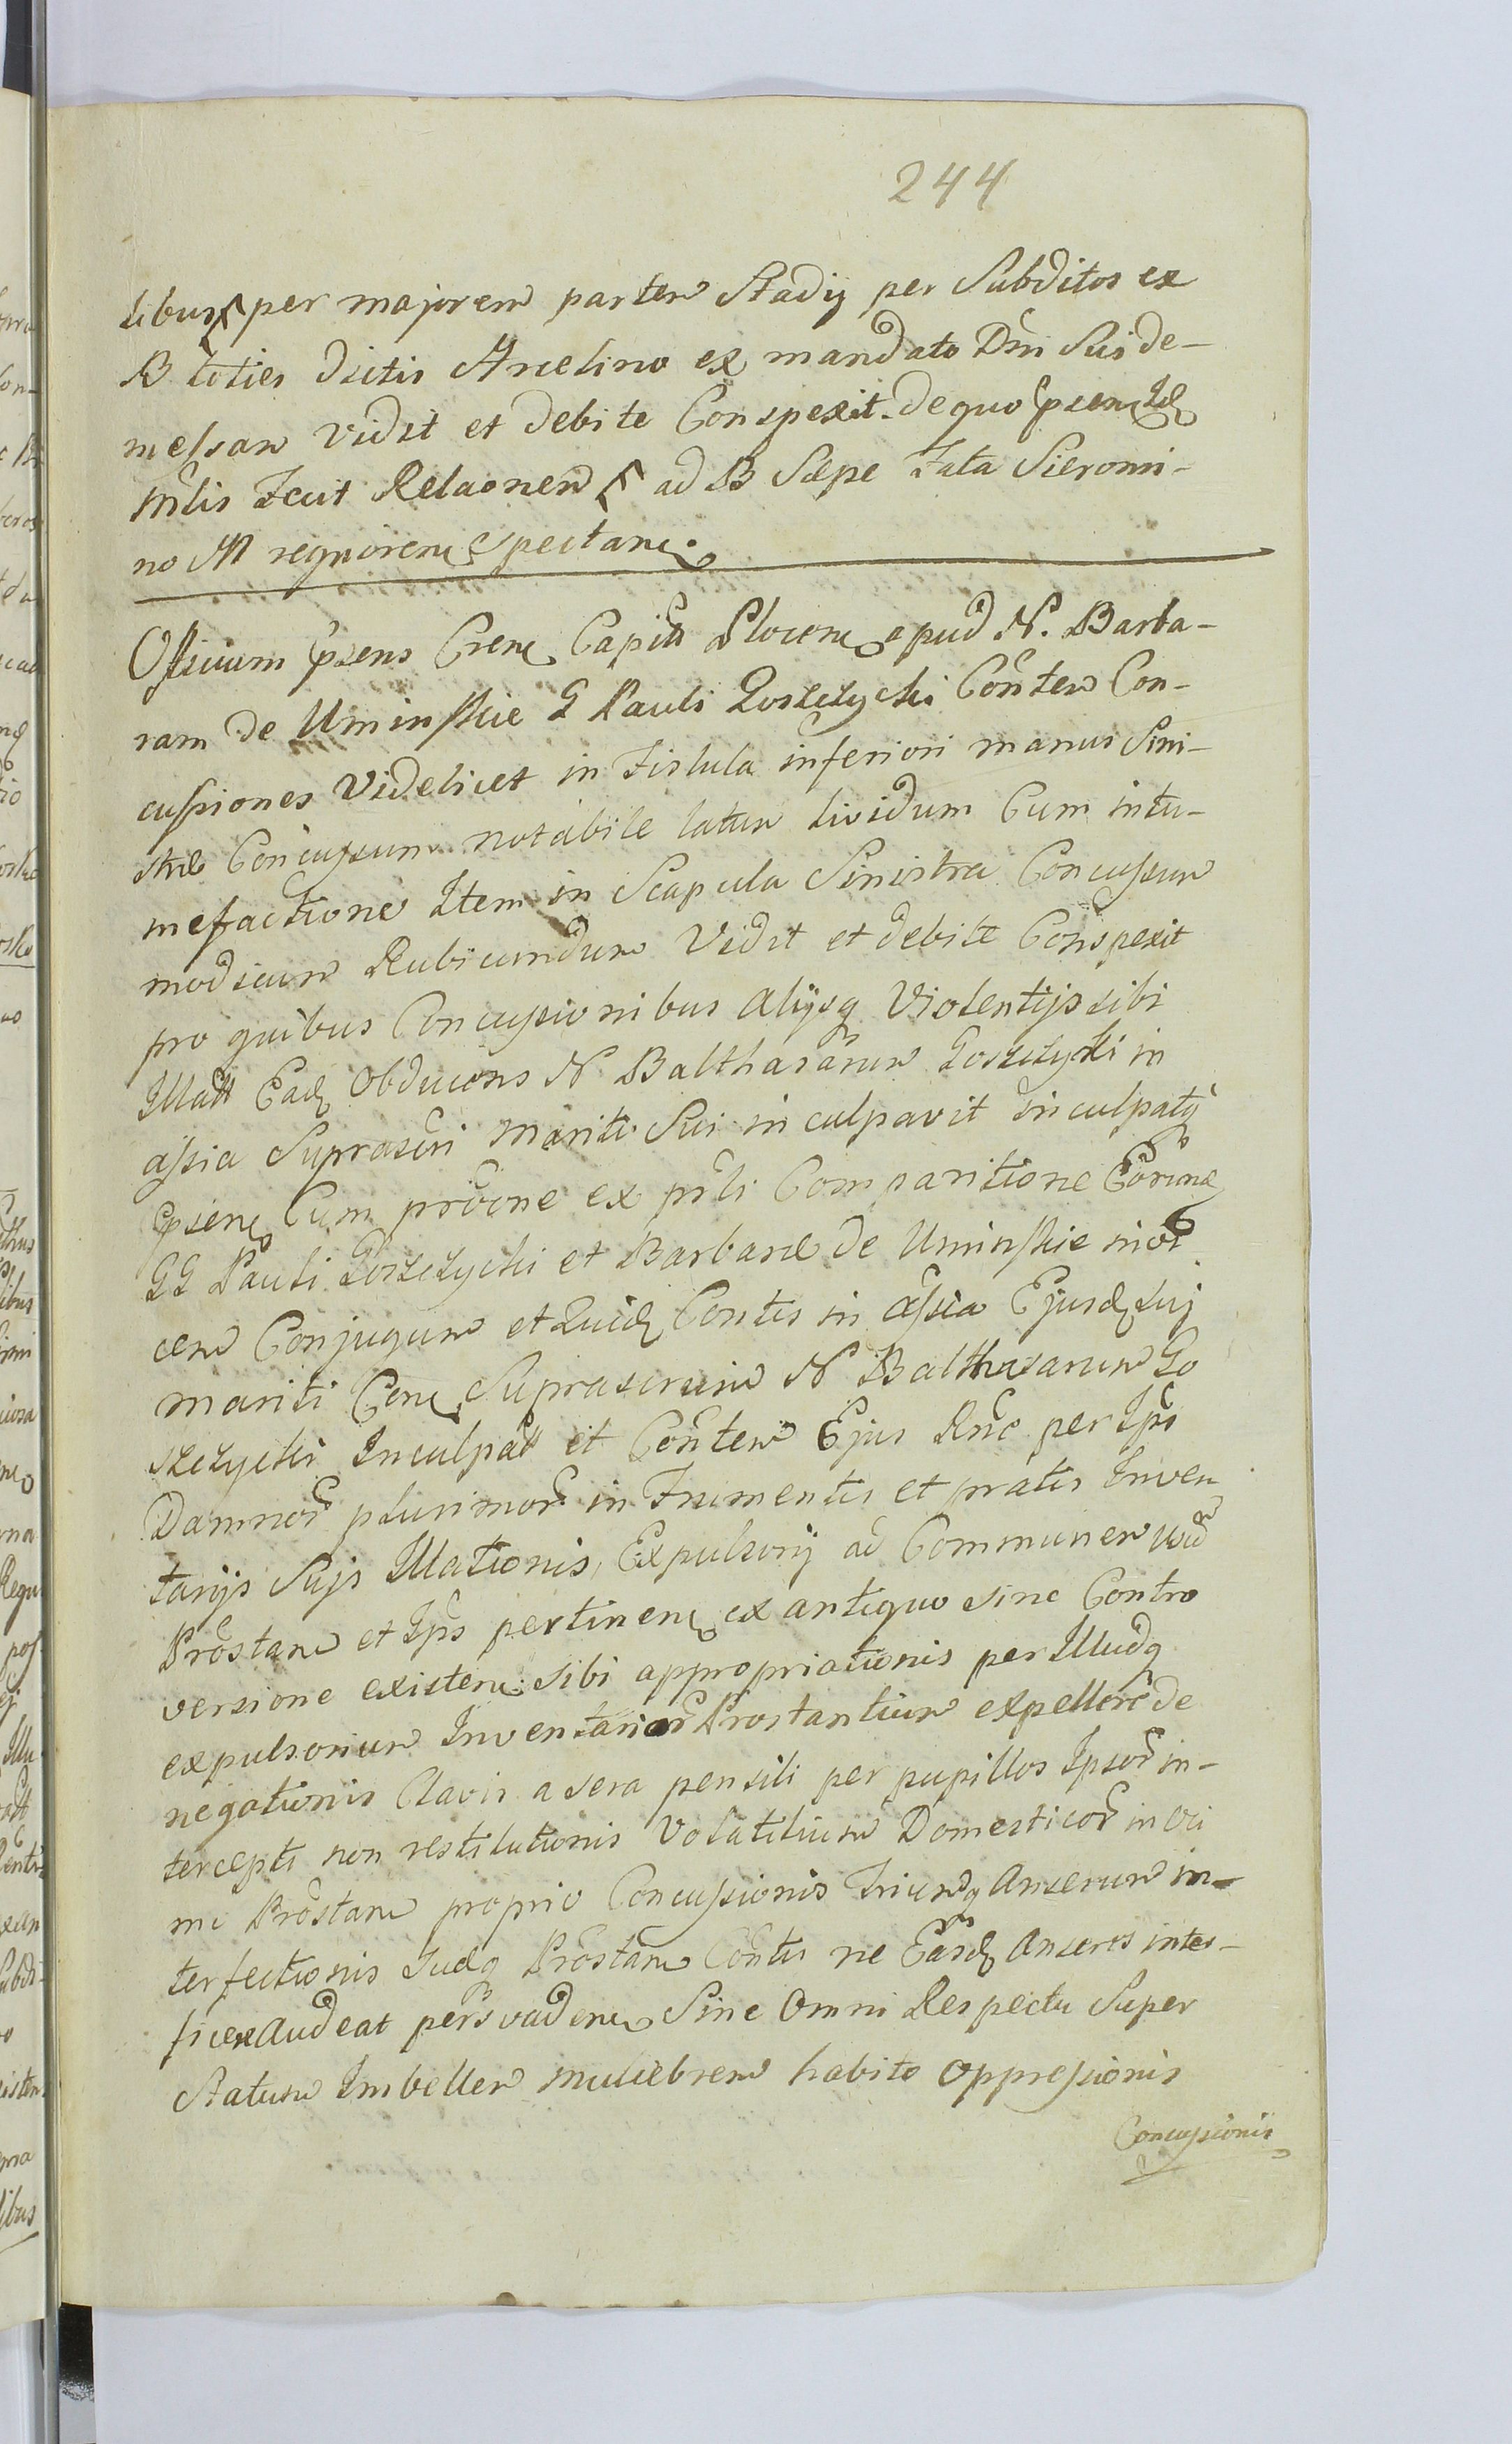 244
libus per majorem partem Stadij per Subditos ex
B toties dictis Arcelino ex mandato Dni Sui de-
messam vidit et debite Conspexit. de quo psens
Mlis Fecit Relaonem ad B Sæpe Fata Sieromi-
no M regnorem spectan.
Officium psens Cren Capitt Plocen apud N. Barba-
ram de Uminskie G Pauli Goszczycki Contem Con-
cussiones Videlicet in Fistula inferiori manus Sini-
stræ Concussum notabile latum lividum Cum intu-
mefactione Item in Scapula Sinistra Concussum
modicum Rubicundum Vidit et debite Conspexit
pro quibus Concussionibus Alijsq Violentijs sibi
Illatt Ead Obducens N Balthasarum Goszczycki in
assia Suprascri Mariti Sui inculpavit inculpatq
psens Cum proone ex prti Comparitione Eorund
GG Pauli Goszczycki et Barbaræ de Uminskie invi
cem Conjugum et Quid Contis in assia Ejusd Sui
mariti Cone Suprascrum N Balthasarum Go
szczycki Inculpatt et Contem Ejus Rne per Ips
Damnor plurimor in Frumentis et pratis Inven
tarijs Sujs Illationis, Expulsorij ad Communem usu
Prostan et Ips pertinen ex antiquo sine Contro
versione existen sibi appropriationis per Illudq
expulsorium Inventarior Prostantium expellere de
negationis Clavis a sera pensili per pupillos Ipsor in-
tercepti non restitutionis Volatilium Domesticor in Vi
mi Prostan proprio Concussionis Triumq Anserum in-
terfectionis Sudq Prostan Contis ne Easd Anseres inter-
ficere Audeat persvaden Sine Omni Respectu Super
Statum Imbellem muliebrem habito Oppressionis
Concussionis